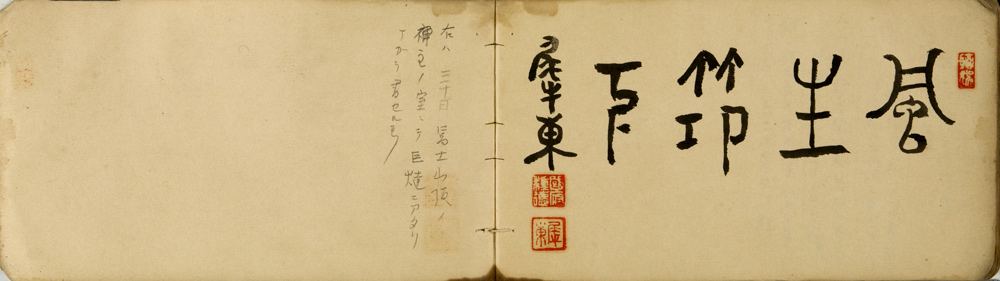 風生筇下
犀東
犀東
右ハ三十日冨士山頂ノ
神主ノ室ニテ巨燵ニアタリ
ナガラ書セルモノ